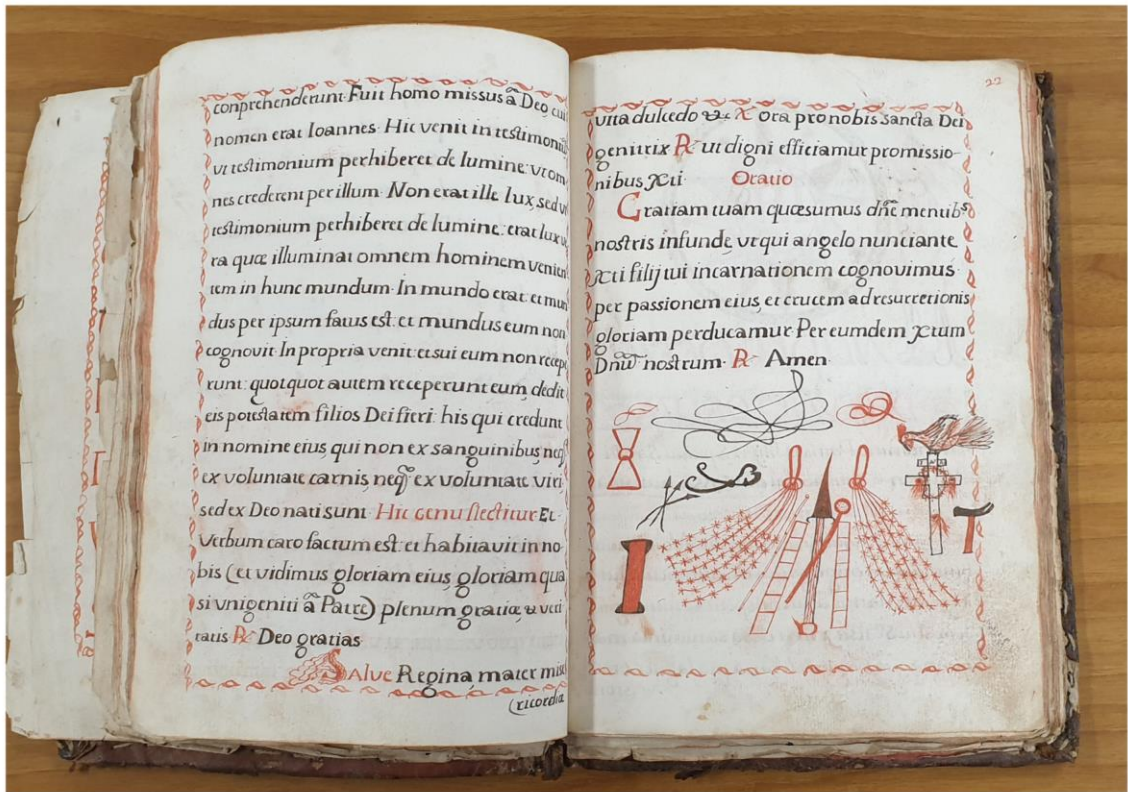 conprehenderunt. Fuit homo missus â Deo, cui
nomen erat Ioannes. Hic venit in testimoniũ
ut testimonium perhiberet de lumine: ut om-
nes crederent per illum. Non erat ille lux, sed ut
testimonium perhiberet de lumine: erat lux ve
ra quæ illuminat omnem hominem venien
tem in hunc mundum. In mundo erat, et mun
dus per ipsum fatus est: et mundus eum non
cognovit. In propria venit: et sui eum non recepe
runt: quotquot autem receperunt eum, dedit
eis potestatem filios Dei fieri: his qui credunt
in nomine eius qui non ex sanguinibus, neq̃
ex voluntate carnis, neq̃ ex voluntate viri
sed ex Deo nati sunt. Hic genu flectitur Et
Verbum caro factum est: et habitavit in no-
bis (et vidimus gloriam eius, gloriam qua
si vnigeniti â Patre) plenum gratiæ, & veri
tatis ℞ Deo gratias
Salve Regina, mater mise
(ricordiæ
22
vita dulcedo &c ℣ Ora pro nobis Sancta Dei
genitrix ℞ ut digni efficiamur promissio-
nibus Xti Oratio
Gratiam tuam quæsumus dñe mentibs
nostris infunde, ut qui angelo nunciante
Xti filij tui incarnationem cognovimus.
per passionem eius, et crucem ad resurrectionis
gloriam perducamur. Per eumdem Xtum
Dñũ nostrum. ℞ Amen.